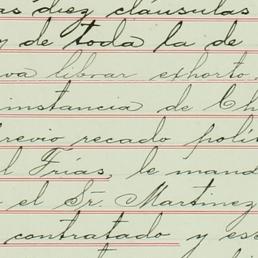 as diez cláusulas
y de toda la de
va librar exhorto,
instancia de Ch
previo recado polít
l Frías, le mand
el Sr. Martinez
contratado y es